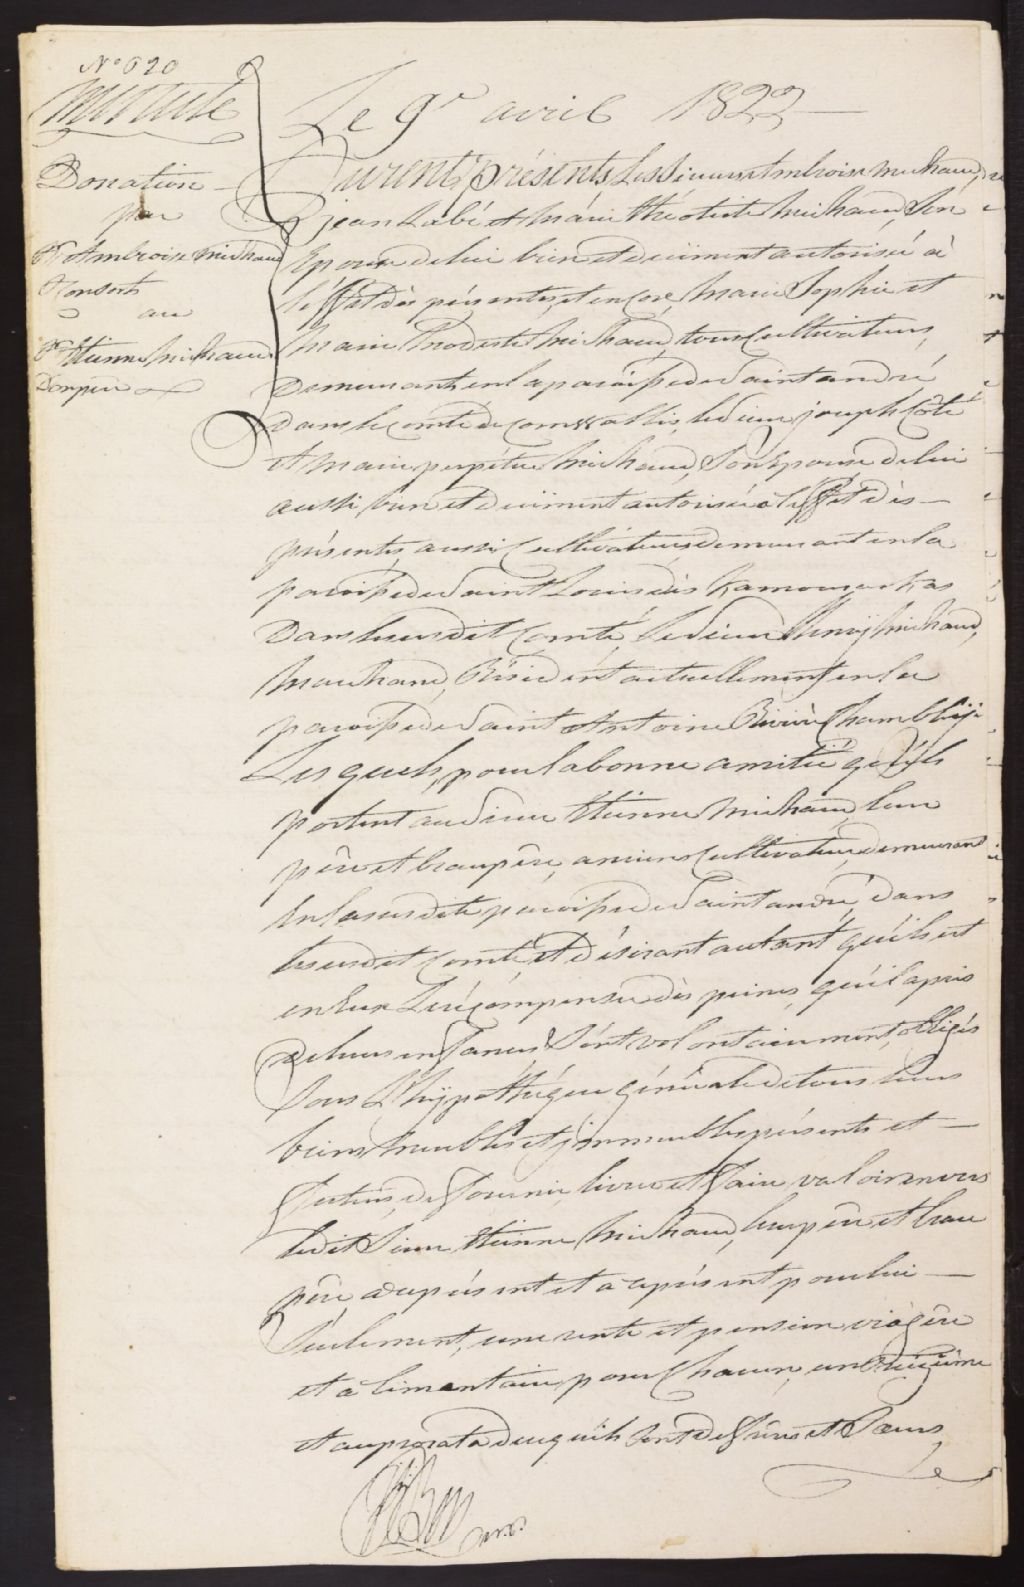 N° 620
Minute
Donation
par
Sr Ambroise Michaud
& Consorts
au
Sr Etienne Michaud
Leur père
Le 9r avril 1822
Furent Présents Les Sieurs Ambroise Michaud,
jean Labé et Marie théotiste Michaud, Son
Epouse de lui bien et duëment autorisée à
l'éffèt dès présentes, et encore, Marie Sophie et
Marie Modeste Michaud, tous Cultivateurs,
Demeurants en la paroisse de Saint andré
Dans le Comté de Cornwallis, le Sieur joseph Côté
et Marie perpétue Michaud, Son Epouse de lui
aussi bien et duëment autorisée à l'effèt dès
présentes, aussi Cultivateurs, demeurant en la
paroisse de Saint Louis dès Kamouraskas
Dans le susdit Comté, le Sieur Henrÿ Michaud,
Marchand, Résident actuellement en la
paroisse de Saint Antoine Rivière Chamblÿ:
Les quels, pour la bonne amitié qu'ils
portent au Sieur Etienne Michaud, leur
père et beaupère, anciens Cultivateur, demeurant
en la susdite paroisse de Saint andré, dans
le susdit Comté, et Désirant autant qu'il est
en Eux Le récompenser dès peines qu'il a pris
de leurs enfances, Sont volontairement, obligés
Sous L'hÿpothèque générale de tous leurs
biens Meubles et jmmeubles présents et
futurs, de fournir, livrer et faire valoir envers
ledit Sieur Etienne Michaud, leur père et beau
père à ce présent et acceptant pour lui
Seulement, une rente et pension viagère
et alimentaire, pour Chacun, un
et au prorata de ce qu'ils Sont de frères et Sœurs